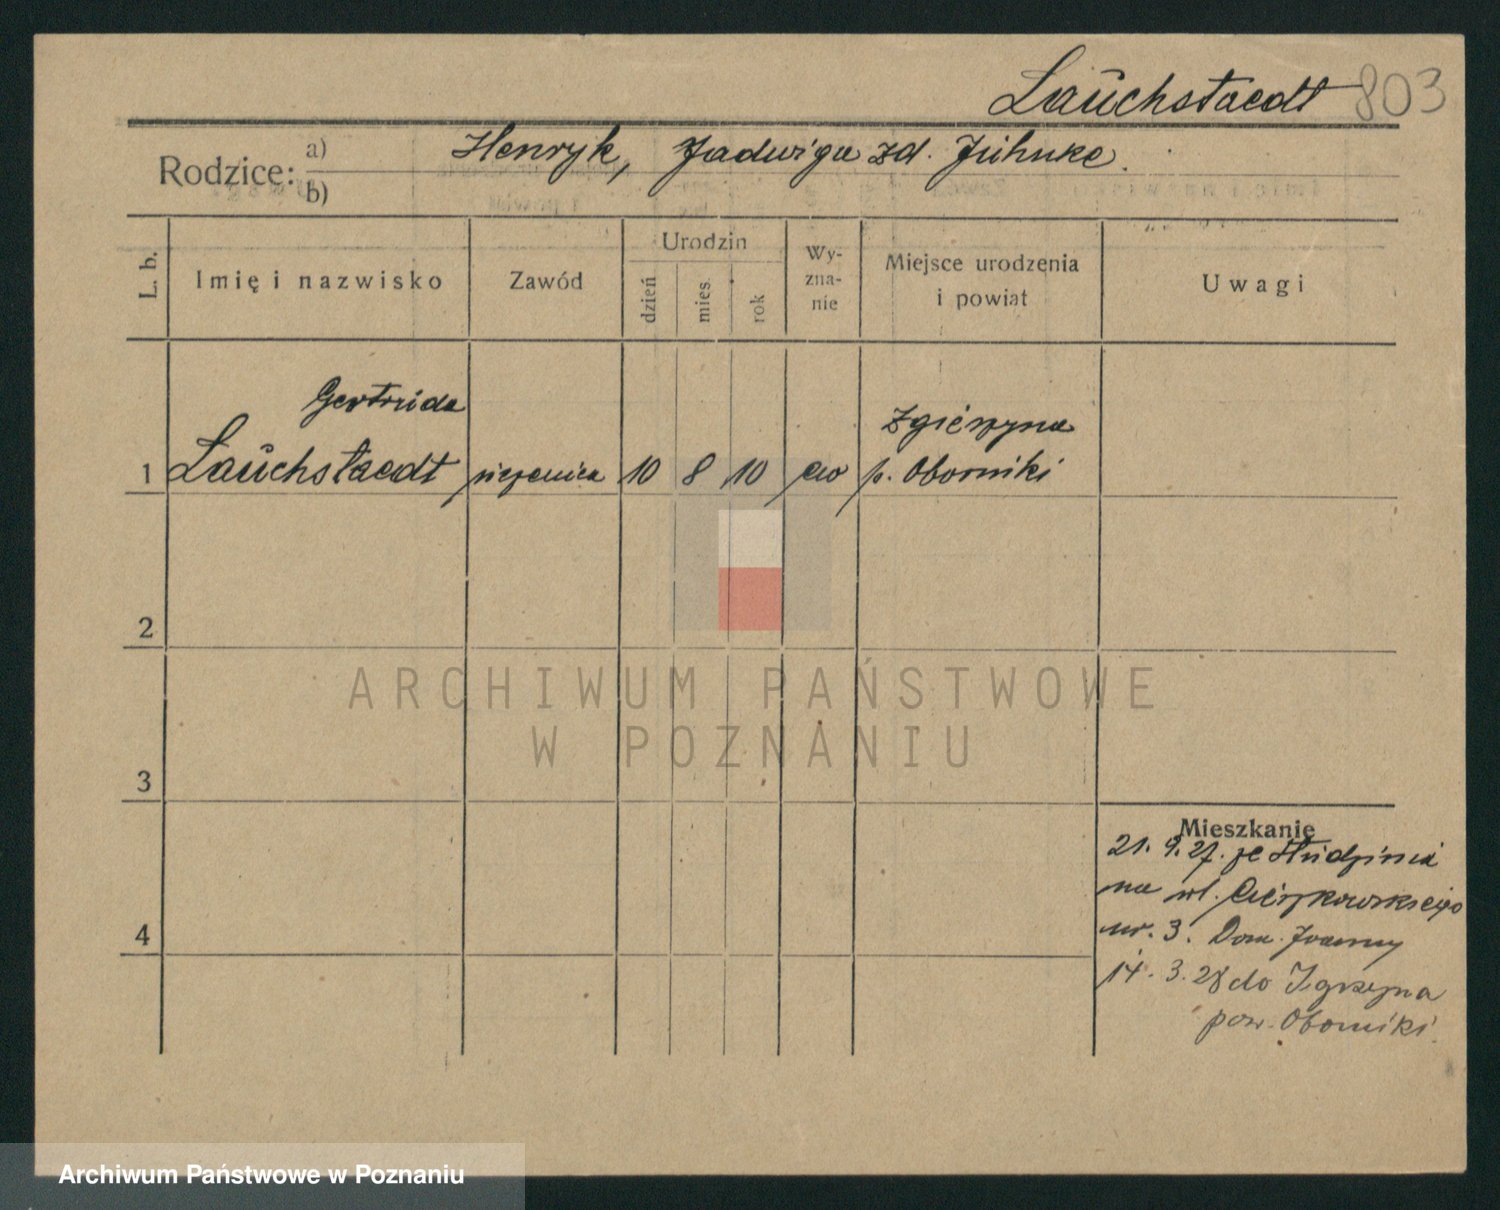 Lauchstaedt 803
Rodzice: a) Henryk, Jadwiga zd. Juhnke.
b)
L. b.
Imię i nazwisko
Zawód
Urodzin
dzień
mies.
rok
Wy-
zna-
nie
Miejsce urodzenia
i powiat
Uwagi
Gertruda
1 Lauchstaedt uczenica 10 8 10 ew
p. Oborniki
2
3
4
Mieszkanie
21. 9. 27. ze
na ul. Cieszkowskiego
nr. 3. Dom. Joanny
14. 3. 28 do
pow. Oborniki.
ARCHIWUM PAŃSTWOWE
W POZNANIU
Archiwum Państwowe w Poznaniu